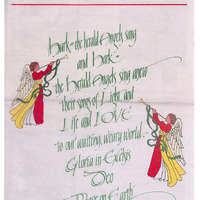 Hark the herald Angels sing
and Hark
the Herald Angels sing anew
their songs of Light, and
Life and LOVE
to our waiting, weary world
Gloria in Excelsis
Deo
Peace on Earth